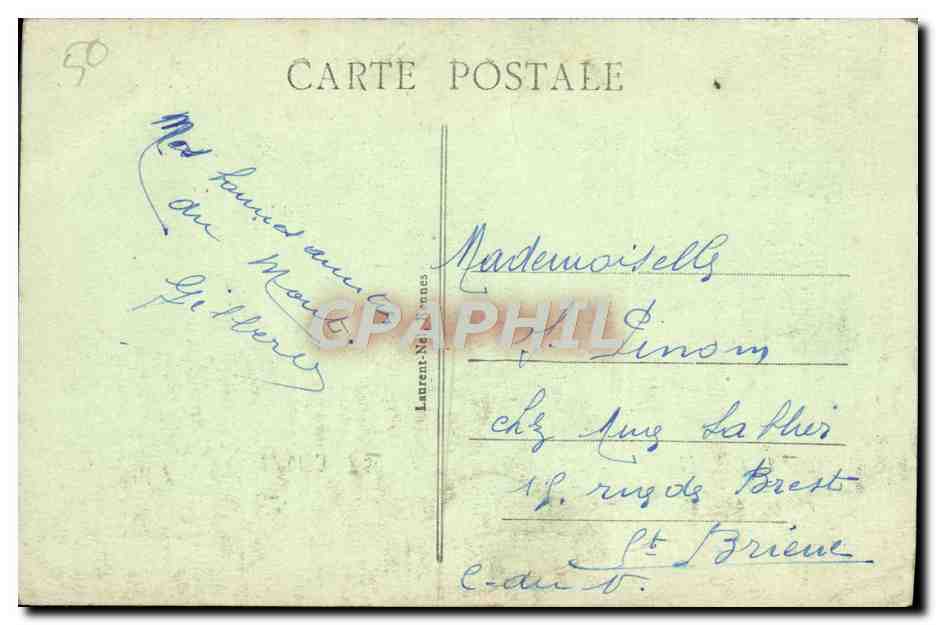 50
CARTE POSTALE
du Mont.
Gilberte
Laurent-Nel Rennes
CPAPHIL
Mademoiselle
Pinom
chez Mme Sablier
rue de Brest
St Brieuc
C-du-N.